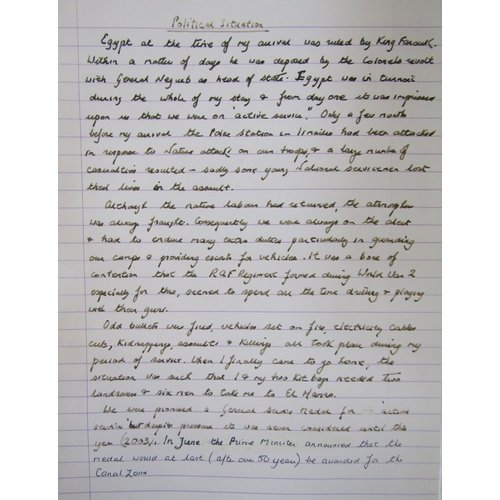 Political Situation
Egypt at the time of my arrival was ruled by King Farouk.
Within a matter of days he was deposed by the Colonels revolt
with General Neguib as head of state. Egypt was in turmoil
during the whole of my stay & from day one it was impressed
upon us that we were on "active service". Only a few months
before my arrival the Police Station in Ismailia had been attacked
in response to Native attacks on our troops, & a large number of
casualties resulted - sadly some young National servicemen lost
their lives in the assault.
Although the native labour had returned the atmosphere
was always fraught. Consequently we were always on the alert
& had to endure many extra duties particularly in guarding
our camps & providing escorts for vehicles. It was a bone of
contention that the RAF Regiment formed during World War 2
especially for this, seemed to spend all the time drilling & playing
with their guns.
Odd bullets was fired, vehicles set on fire, electricity cables
cut, kidnappings, assaults & killings all took place during my
period of service. When I finally came to go home, the
situation was such that I & my two kit bags needed two
landrovers & six men to take me to El Hamra.
We were promised a General Service Medal for "active
service" but despite pressure it was never considered until this
year (2003). In June the Prime Minister announced that the
medal would at last (after over 50 years) be awarded for the
Canal Zone